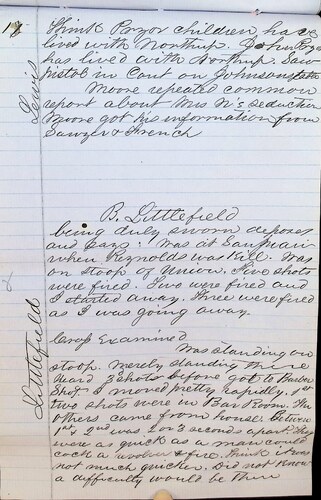 17
Lewis
Think Pryor children have
lived with Northup. John Pryor
has lived with Northup. Saw
pistol in Court on Johnsons table
Moore repeated common
report about Mrs N's seduction
Moore got his information from
Sawyer & French
Littlefield
B. Littlefield
being duly sworn deposes
and says: Was at San Juan
when Reynolds was Kill. Was
on stoop of Union. Five shots
were fired. Two were fired and
I started away. Three were fired
as I was going away.
Cross Examined
Was standing on
stoop. Merely standing there
Heard 2 shots before got to Barber
Shop. I moved pretty rapidly. 1st
two shots were in Bar Room. The
others came from house. Between
1st & 2nd was 2 or 3 seconds apart. They
were as quick as a man could
cock a revolver & fire. Think it was
not much quicker. Did not know
a difficulty would be then